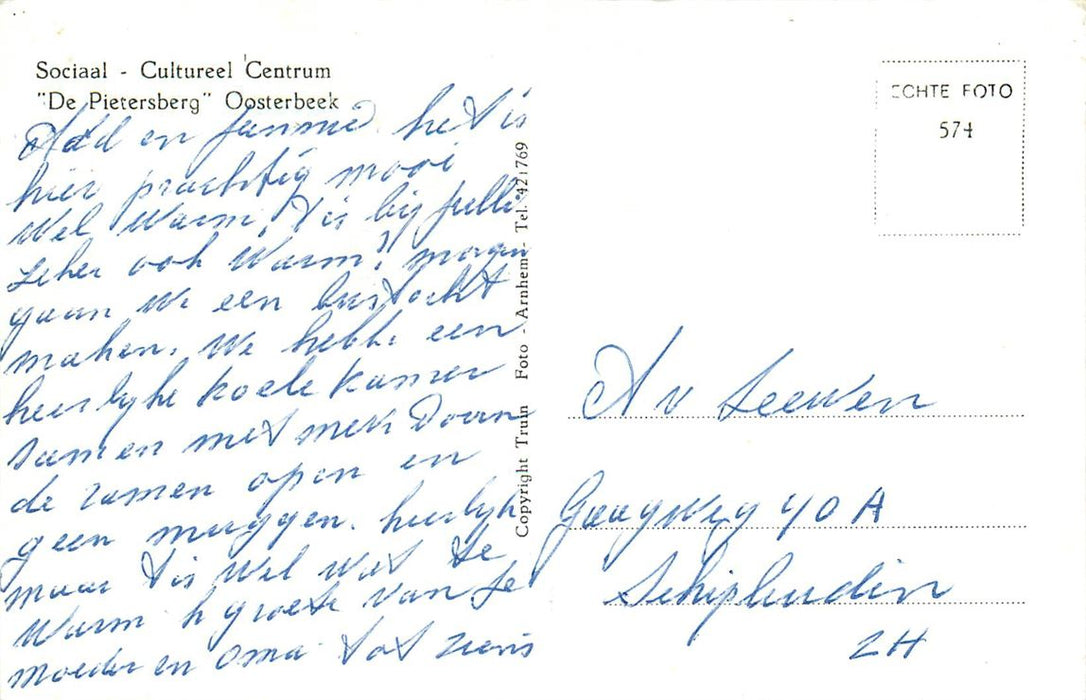 Sociaal - Cultureel Centrum
"De Pietersberg" Oosterbeek
Add en Jannie het is
hier prachtig mooi
wel warm, tis bij jullie
zeker ook warm? morgen
gaan we een bustocht
maken. We hebbe een
heerlijke koele kamer
samen met mevr Doorn
de ramen open en
geen muggen. heerlijk
maar tis wel wat te
warm h groete van je
moeder en oma tot ziens
Copyright Truin Foto - Arnhem - Tel. 421769
ECHTE FOTO
574
A v Leeuwen
Gaagweg 40 A
Schipluiden
ZH